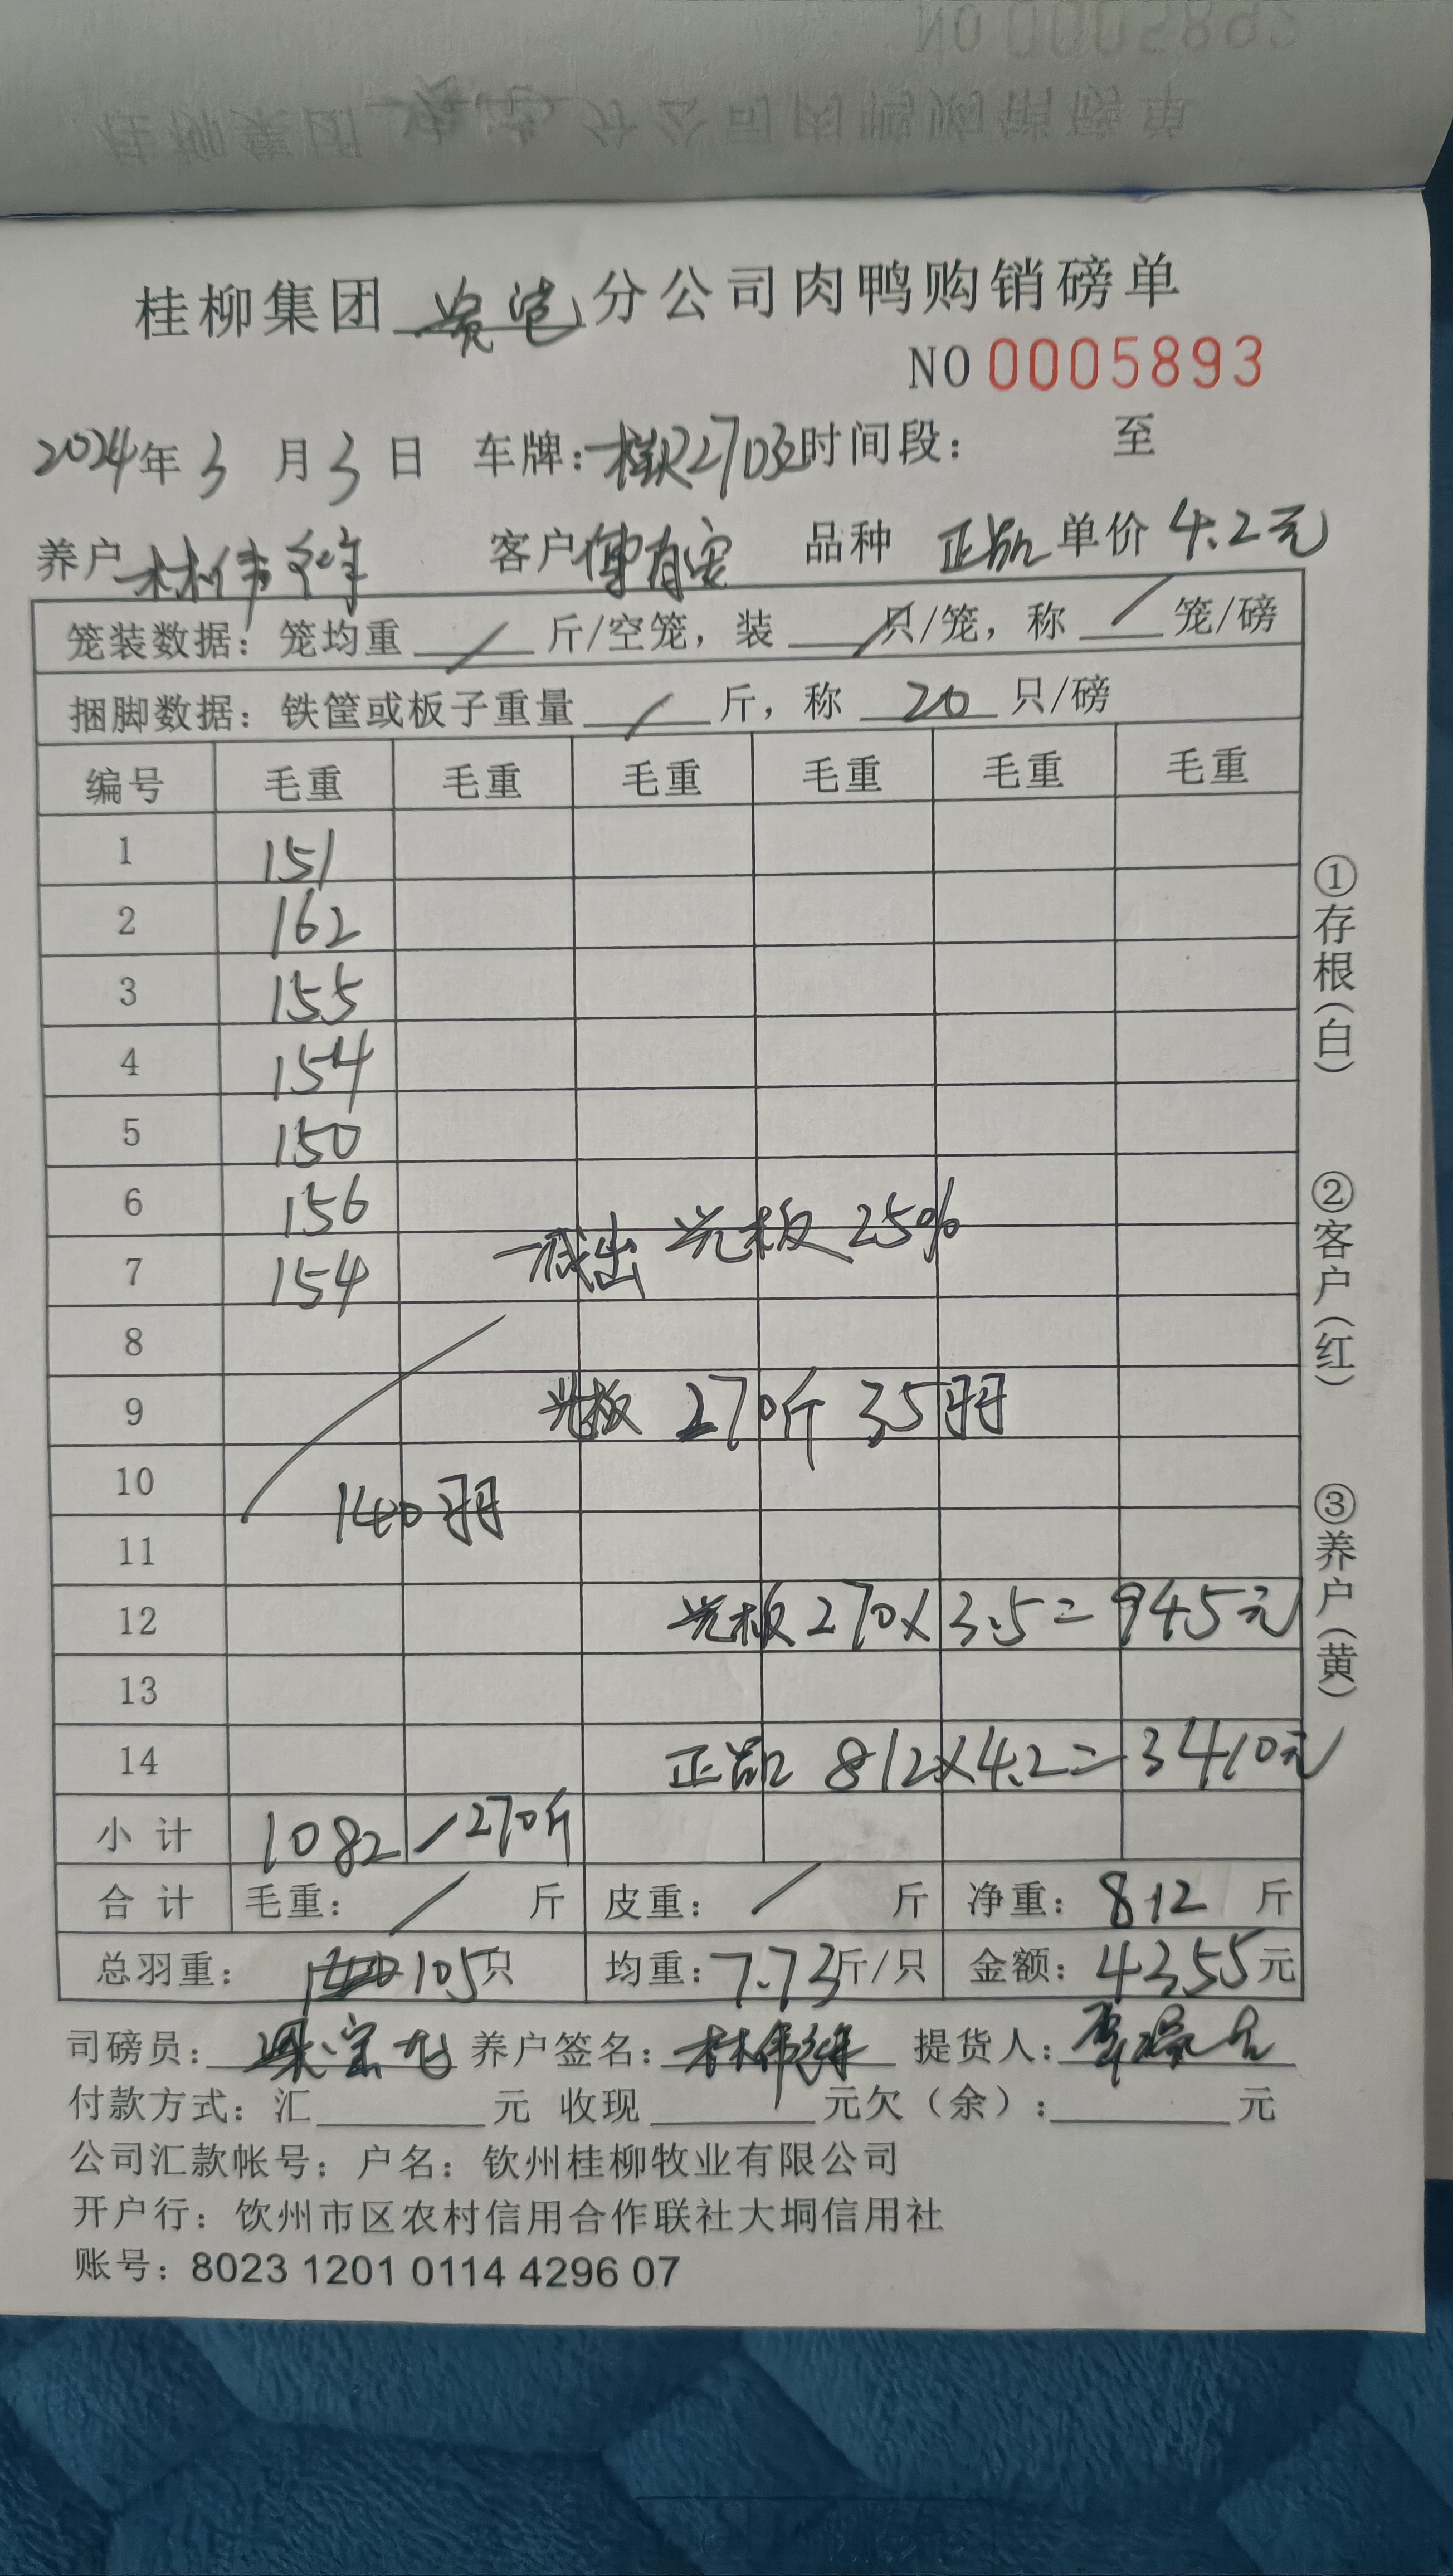 桂柳集团 分公司肉鸭购销磅单
NO 0005893
2024年3月3日 车牌: 时间段: 至
养户 林伟 客户 品种 正品 单价 4.2元
笼装数据:笼均重 / 斤/空笼,装 / 只/笼,称 / 笼/磅
捆脚数据:铁筐或板子重量 / 斤,称 20 只/磅
编号 毛重 毛重 毛重 毛重 毛重 毛重
1 151
2 162
3 155
4 154
5 150
6 156
7 154
减出 光板 25%
8
9 光板 270斤 35羽
10
140羽
11
12 光板 270×3.5=945元
13
14 正品 812×4.2=3410元
小计 1082 / 270斤
合计 毛重: / 斤 皮重: / 斤 净重: 812 斤
总羽重: 105只 均重: 7.73斤/只 金额: 4355元
司磅员: 养户签名: 林伟 提货人:
付款方式:汇 元 收现 元欠(余): 元
公司汇款帐号:户名:钦州桂柳牧业有限公司
开户行:饮州市区农村信用合作联社大垌信用社
账号:8023 1201 0114 4296 07
①存根(白) ②客户(红) ③养户(黄)